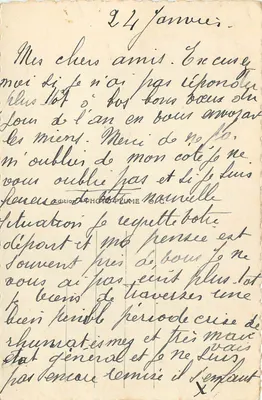 24 Janvier.
Mes chers amis. Excusez
moi si je n'ai pas répondu
plus tôt à vos bons vœux du
jour de l'an en vous envoyant
les miens. Merci de ne pas
m'oublier de mon coté je ne
vous oublie pas et si je suis
nouvelle
situation je regrette votre
départ et ma pensée est
souvent près de vous je ne
vous ai pas écrit plus tôt
je viens de traverser une
bien pénible periode crise de
rhumatismes et très mauvais
état général et je ne suis
pas encore remise il s'enfaut